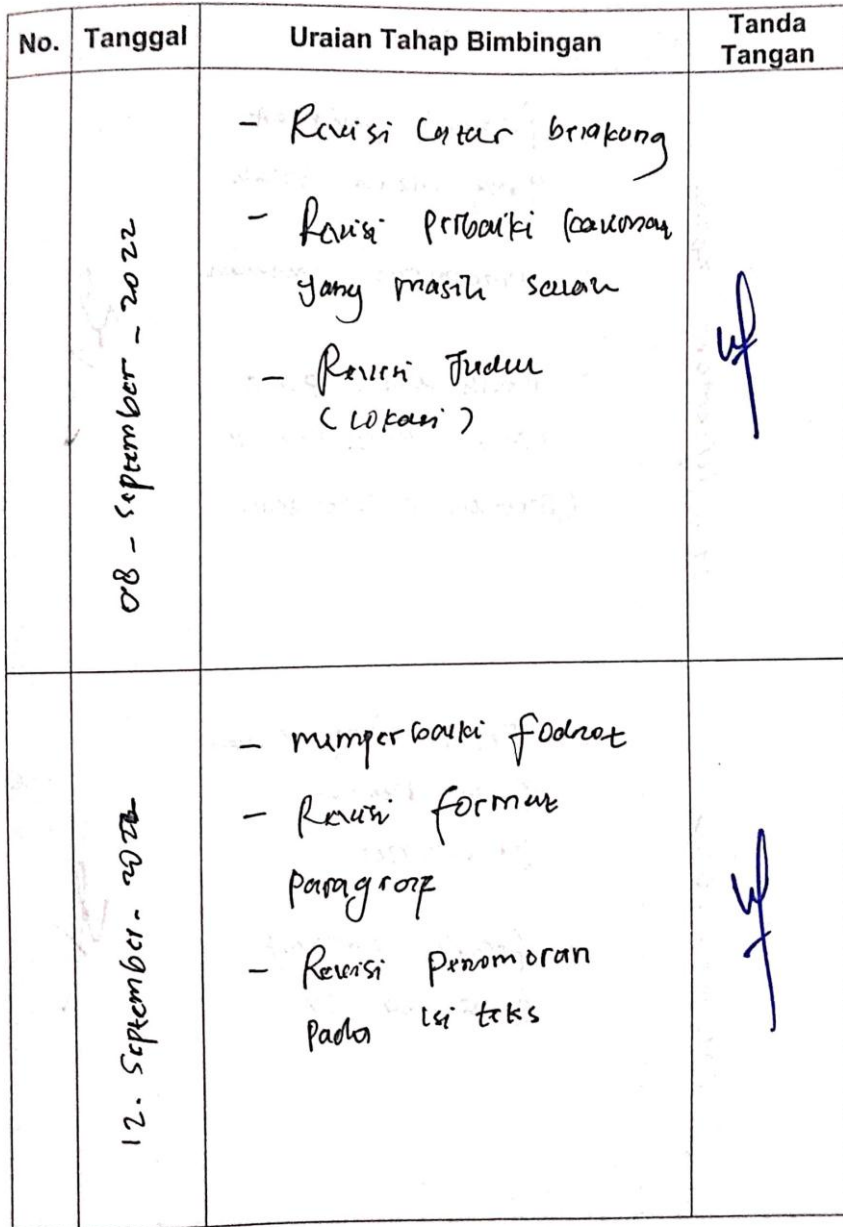 No. Tanggal Uraian Tahap Bimbingan Tanda Tangan
08 - September - 2022
- Revisi Latar belakang
- Revisi perbaiki
yang masih salah
- Revisi Judul
(Lokasi)
12. September - 2022
- memperbaiki foodnot
- Revisi format
paragraf
- Revisi Penomoran
pada isi teks